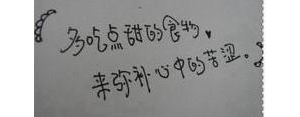 多吃点甜的食物、
来弥补心中的苦涩。